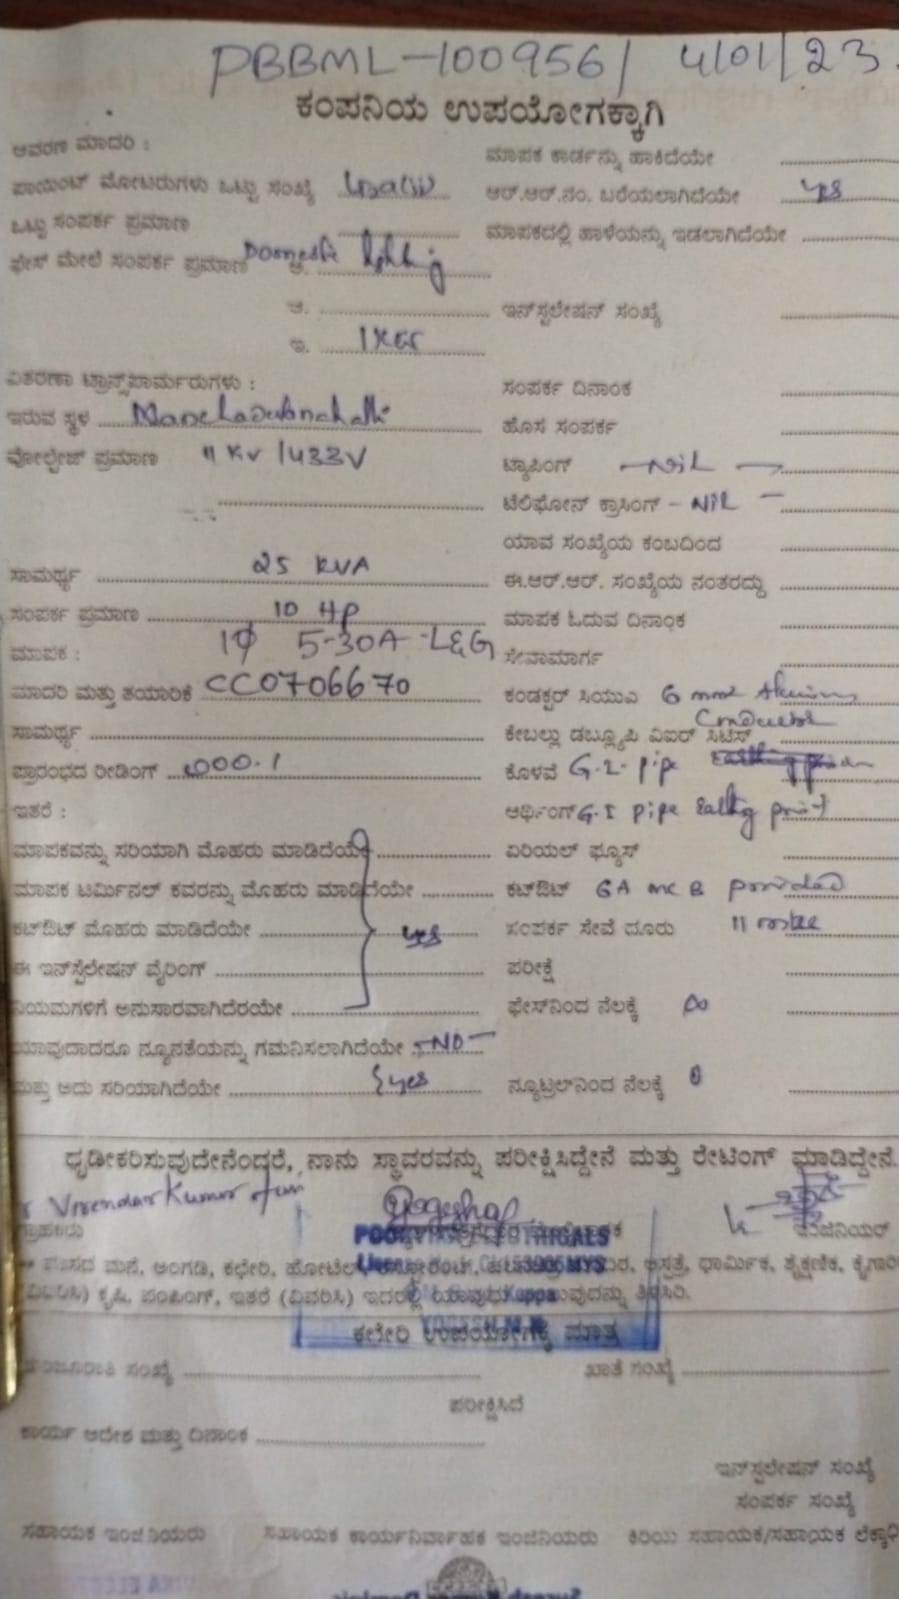 PBBML-100956/ 4/01/23
ಕಂಪನಿಯ ಉಪಯೋಗಕ್ಕಾಗಿ
ಆವರಣ ಮಾದರಿ :
ಮಾಪಕ ಕಾರ್ಡನ್ನು ಹಾಕಿದೆಯೇ
ಪಾಯಿಂಟ್ ಮೋಟರುಗಳು ಒಟ್ಟು ಸಂಖ್ಯೆ
ಆರ್.ಆರ್.ನಂ. ಬರೆಯಲಾಗಿದೆಯೇ yes
ಒಟ್ಟು ಸಂಪರ್ಕ ಪ್ರಮಾಣ
ಮಾಪಕದಲ್ಲಿ ಹಾಳೆಯನ್ನು ಇಡಲಾಗಿದೆಯೇ
ಫೇಸ್ ಮೇಲೆ ಸಂಪರ್ಕ ಪ್ರಮಾಣ Domestic lighting
ಆ.
ಇನ್‌ಸ್ಟಲೇಷನ್ ಸಂಖ್ಯೆ
ಇ.
ವಿತರಣಾ ಟ್ರಾನ್ಸ್‌ಫಾರ್ಮರುಗಳು :
ಸಂಪರ್ಕ ದಿನಾಂಕ
ಇರುವ ಸ್ಥಳ
ಹೊಸ ಸಂಪರ್ಕ
ವೋಲ್ಟೇಜ್ ಪ್ರಮಾಣ 11 KV /433V
ಟ್ಯಾಪಿಂಗ್ -NIL-
ಟೆಲಿಫೋನ್ ಕ್ರಾಸಿಂಗ್ - NIL -
ಯಾವ ಸಂಖ್ಯೆಯ ಕಂಬದಿಂದ
ಸಾಮರ್ಥ್ಯ 25 KVA
ಈ.ಆರ್.ಆರ್. ಸಂಖ್ಯೆಯ ನಂತರದ್ದು
ಸಂಪರ್ಕ ಪ್ರಮಾಣ 10 HP
ಮಾಪಕ ಓದುವ ದಿನಾಂಕ
ಮಾಪಕ : 1φ 5-30A -L&G
ಸೇವಾಮಾರ್ಗ
ಮಾದರಿ ಮತ್ತು ತಯಾರಿಕೆ CC0706670
ಕಂಡಕ್ಟರ್ ಸಿಯುಎ 6 mm
Conductor
ಸಾಮರ್ಥ್ಯ
ಕೇಬಲ್ಲು ಡಬ್ಲ್ಯೂಪಿ ವಿಐಆರ್ ಸಿಟಿಸ್
ಪ್ರಾರಂಭದ ರೀಡಿಂಗ್ 000.1
ಕೊಳವೆ G.I. pipe
ಇತರೆ :
ಆರ್ಥಿಂಗ್ G.I pipe Earthing point
ಮಾಪಕವನ್ನು ಸರಿಯಾಗಿ ಮೊಹರು ಮಾಡಿದೆಯೇ
ಏರಿಯಲ್ ಫ್ಯೂಸ್
ಮಾಪಕ ಟರ್ಮಿನಲ್ ಕವರನ್ನು ಮೊಹರು ಮಾಡಿದೆಯೇ
ಕಟ್ಔಟ್ 6A MCB provided
ಕಟ್ಔಟ್ ಮೊಹರು ಮಾಡಿದೆಯೇ yes
ಸಂಪರ್ಕ ಸೇವೆ ದೂರು
ಈ ಇನ್‌ಸ್ಟೆಲೇಷನ್ ವೈರಿಂಗ್
ಪರೀಕ್ಷೆ
ನಿಯಮಗಳಿಗೆ ಅನುಸಾರವಾಗಿದೆರಯೇ
ಫೇಸ್‌ನಿಂದ ನೆಲಕ್ಕೆ ∞
ಯಾವುದಾದರೂ ನ್ಯೂನತೆಯನ್ನು ಗಮನಿಸಲಾಗಿದೆಯೇ -NO-
ಮತ್ತು ಅದು ಸರಿಯಾಗಿದೆಯೇ yes
ನ್ಯೂಟ್ರಲ್‌ನಿಂದ ನೆಲಕ್ಕೆ 0
ಧೃಡೀಕರಿಸುವುದೇನೆಂದರೆ, ನಾನು ಸ್ಥಾವರವನ್ನು ಪರೀಕ್ಷಿಸಿದ್ದೇನೆ ಮತ್ತು ರೇಟಿಂಗ್ ಮಾಡಿದ್ದೇನೆ.
Virendar Kumar
ಗ್ರಾಹಕರು
ಇಂಜಿನಿಯರ್
ಮನೆ, ಅಂಗಡಿ, ಕಛೇರಿ, ಹೋಟೆಲ್, ಆಸ್ಪತ್ರೆ, ಧಾರ್ಮಿಕ, ಶೈಕ್ಷಣಿಕ,
ಕೃಷಿ, ಪಂಪಿಂಗ್, ಇತರೆ (ವಿವರಿಸಿ) ಇದರಲ್ಲಿ
ಕಛೇರಿ ಉಪಯೋಗಕ್ಕೆ ಮಾತ್ರ
ಮಂಜೂರಾತಿ ಸಂಖ್ಯೆ
ಖಾತೆ ಸಂಖ್ಯೆ
ಪರೀಕ್ಷಿಸಿದೆ
ಕಾರ್ಯ ಆದೇಶ ಮತ್ತು ದಿನಾಂಕ
ಇನ್‌ಸ್ಟಲೇಷನ್ ಸಂಖ್ಯೆ
ಸಂಪರ್ಕ ಸಂಖ್ಯೆ
ಸಹಾಯಕ ಇಂಜಿನಿಯರು ಸಹಾಯಕ ಕಾರ್ಯನಿರ್ವಾಹಕ ಇಂಜಿನಿಯರು ಕಿರಿಯ ಸಹಾಯಕ/ಸಹಾಯಕ